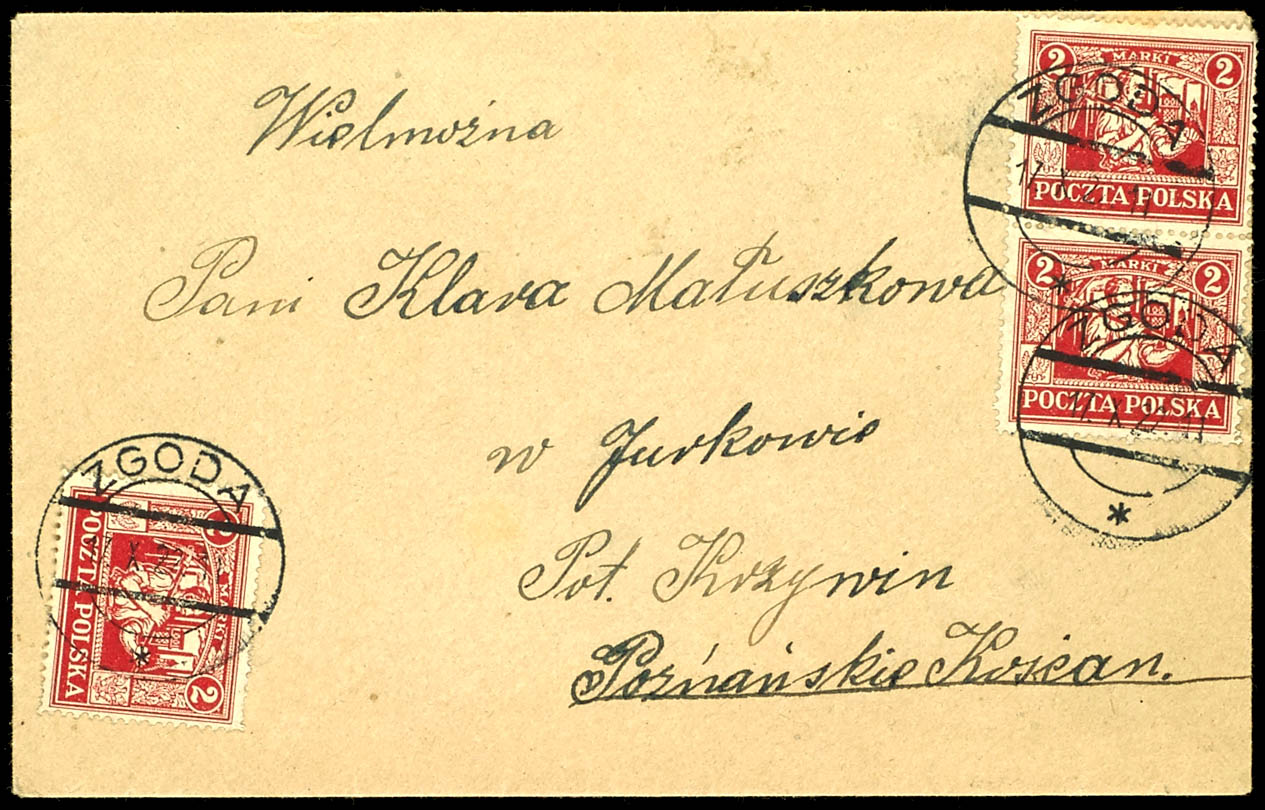 Wielmożna
Pani Klara Matuszkowa
w Jurkowie
Pot. Krzywin
Poznańskie Kościan.
2 MARKI 2
POCZTA POLSKA
ZGODA
2 MARKI 2
POCZTA POLSKA
ZGODA
17. X 22
2 MARKI 2
POCZTA POLSKA
ZGODA
X 22